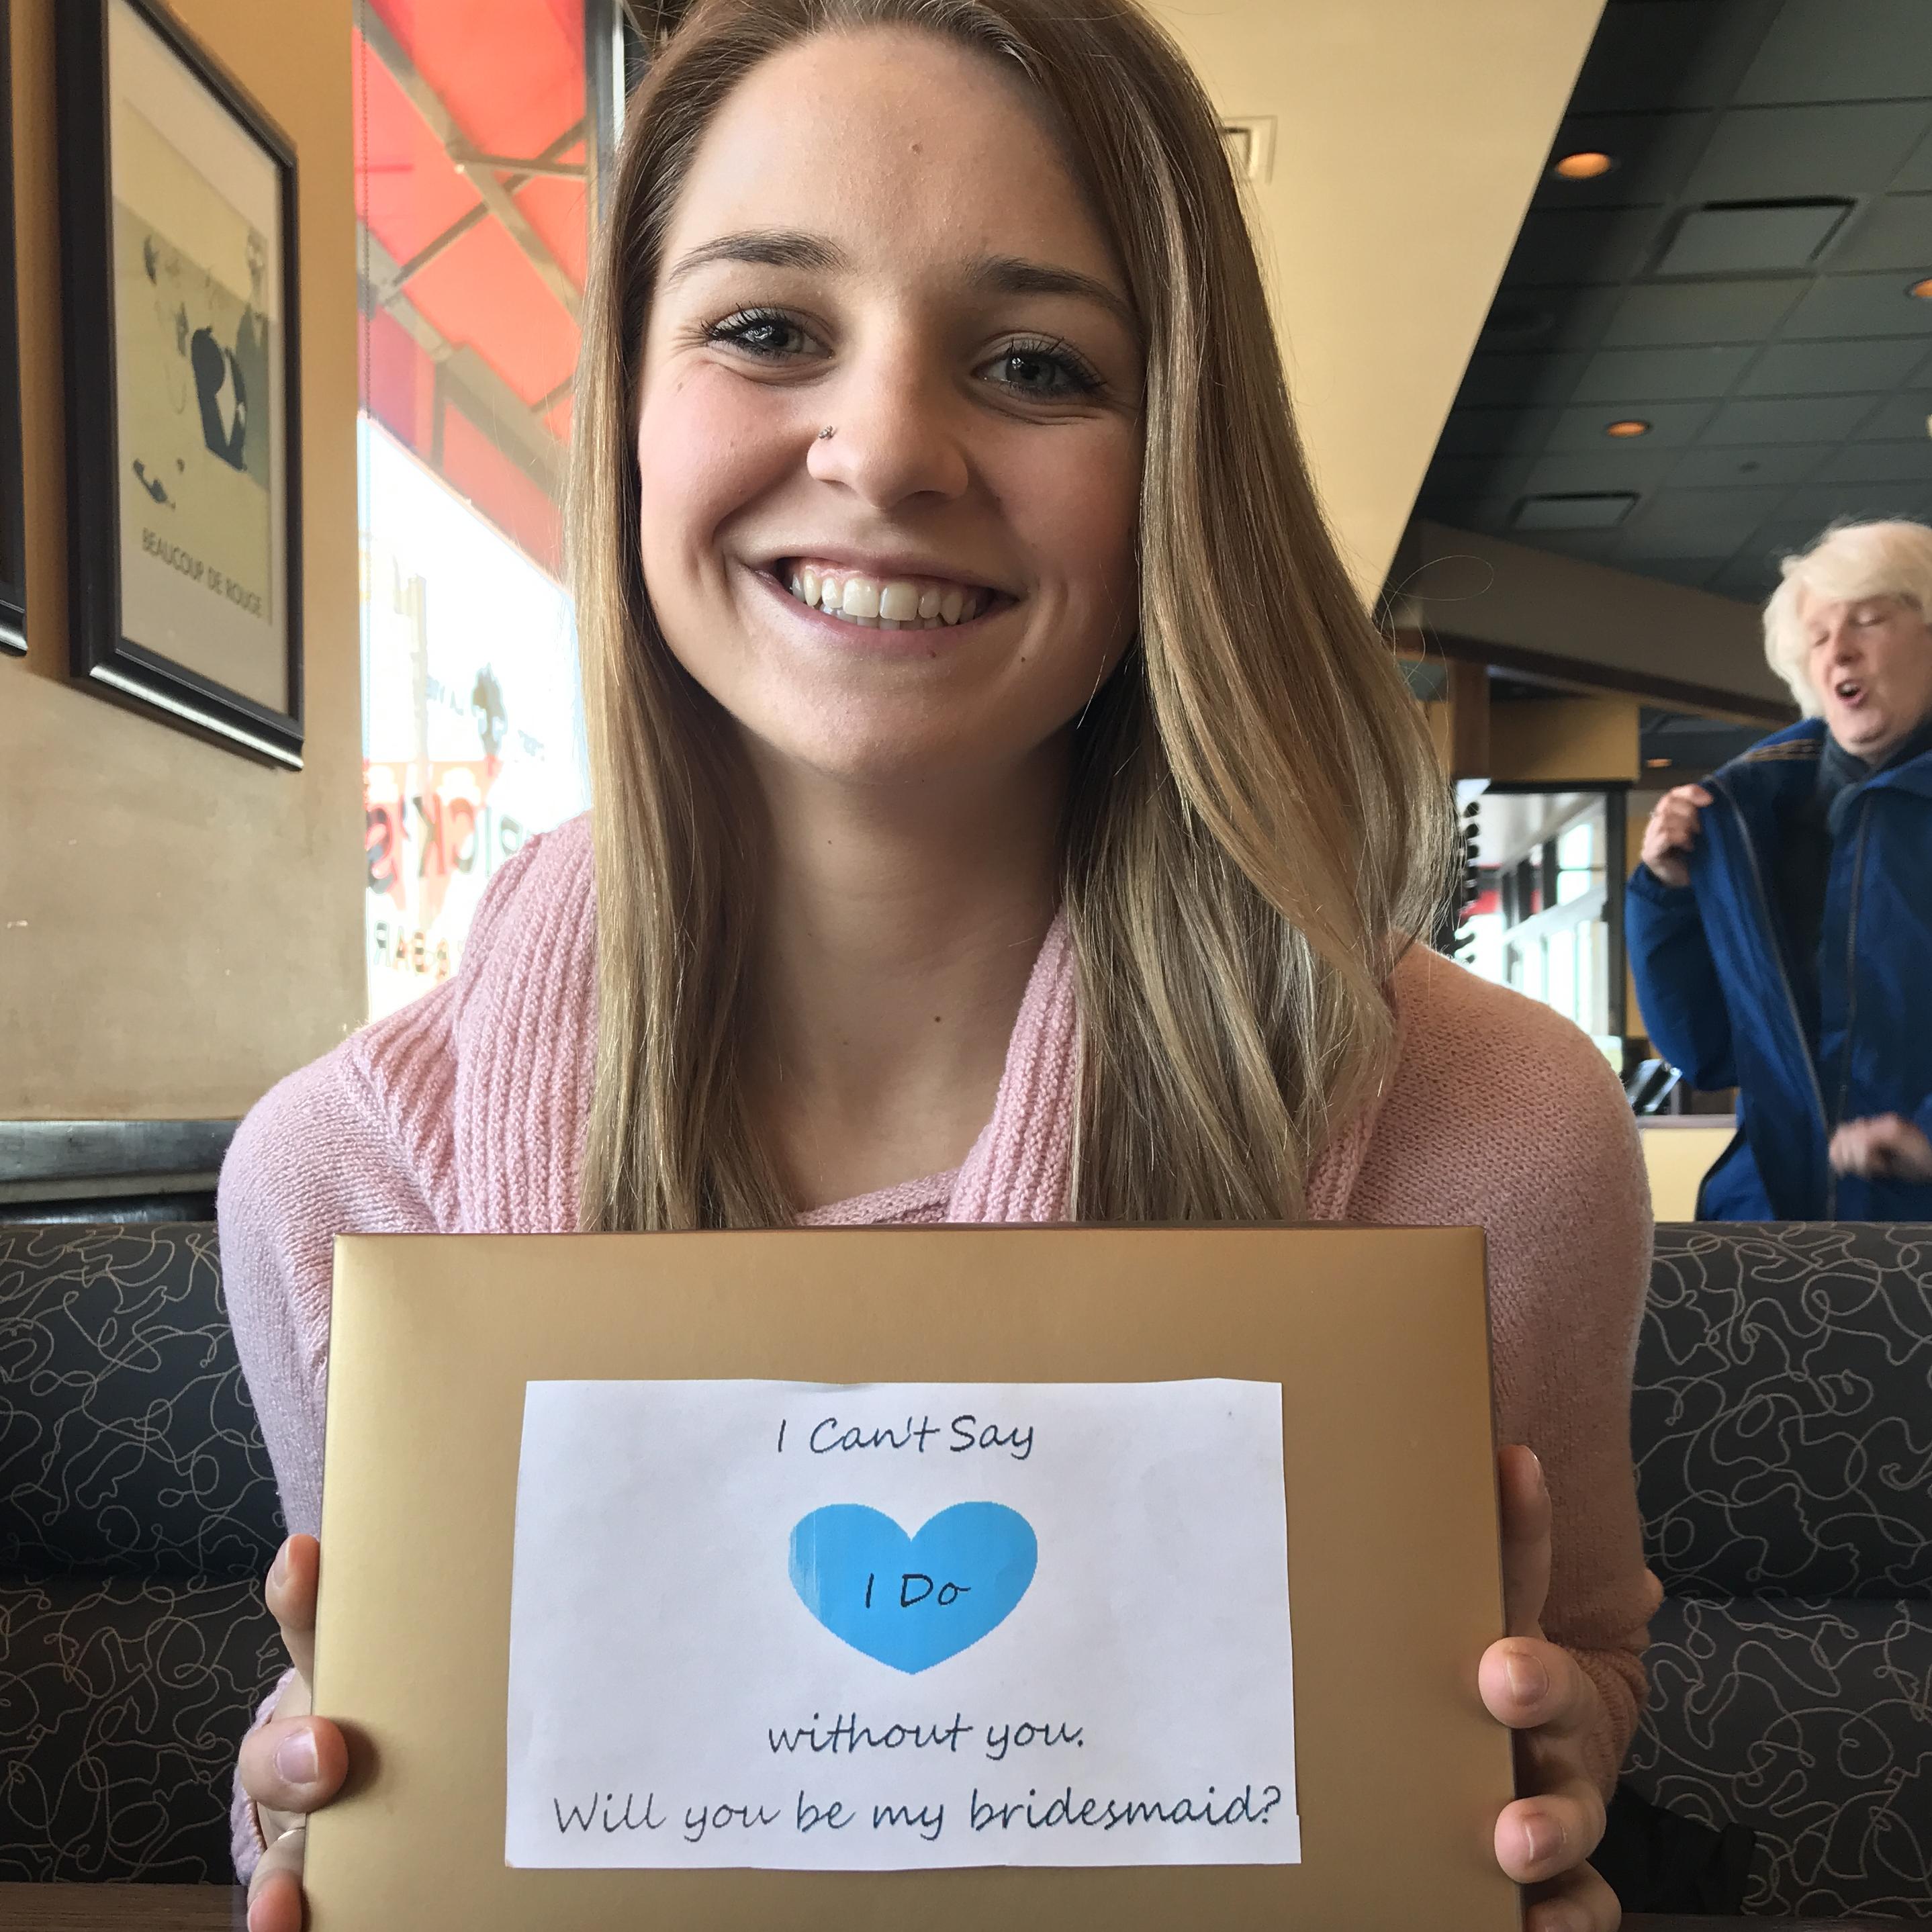 BEAUCOUP DE ROUGE
I Can't Say
I Do
without you.
Will you be my bridesmaid?